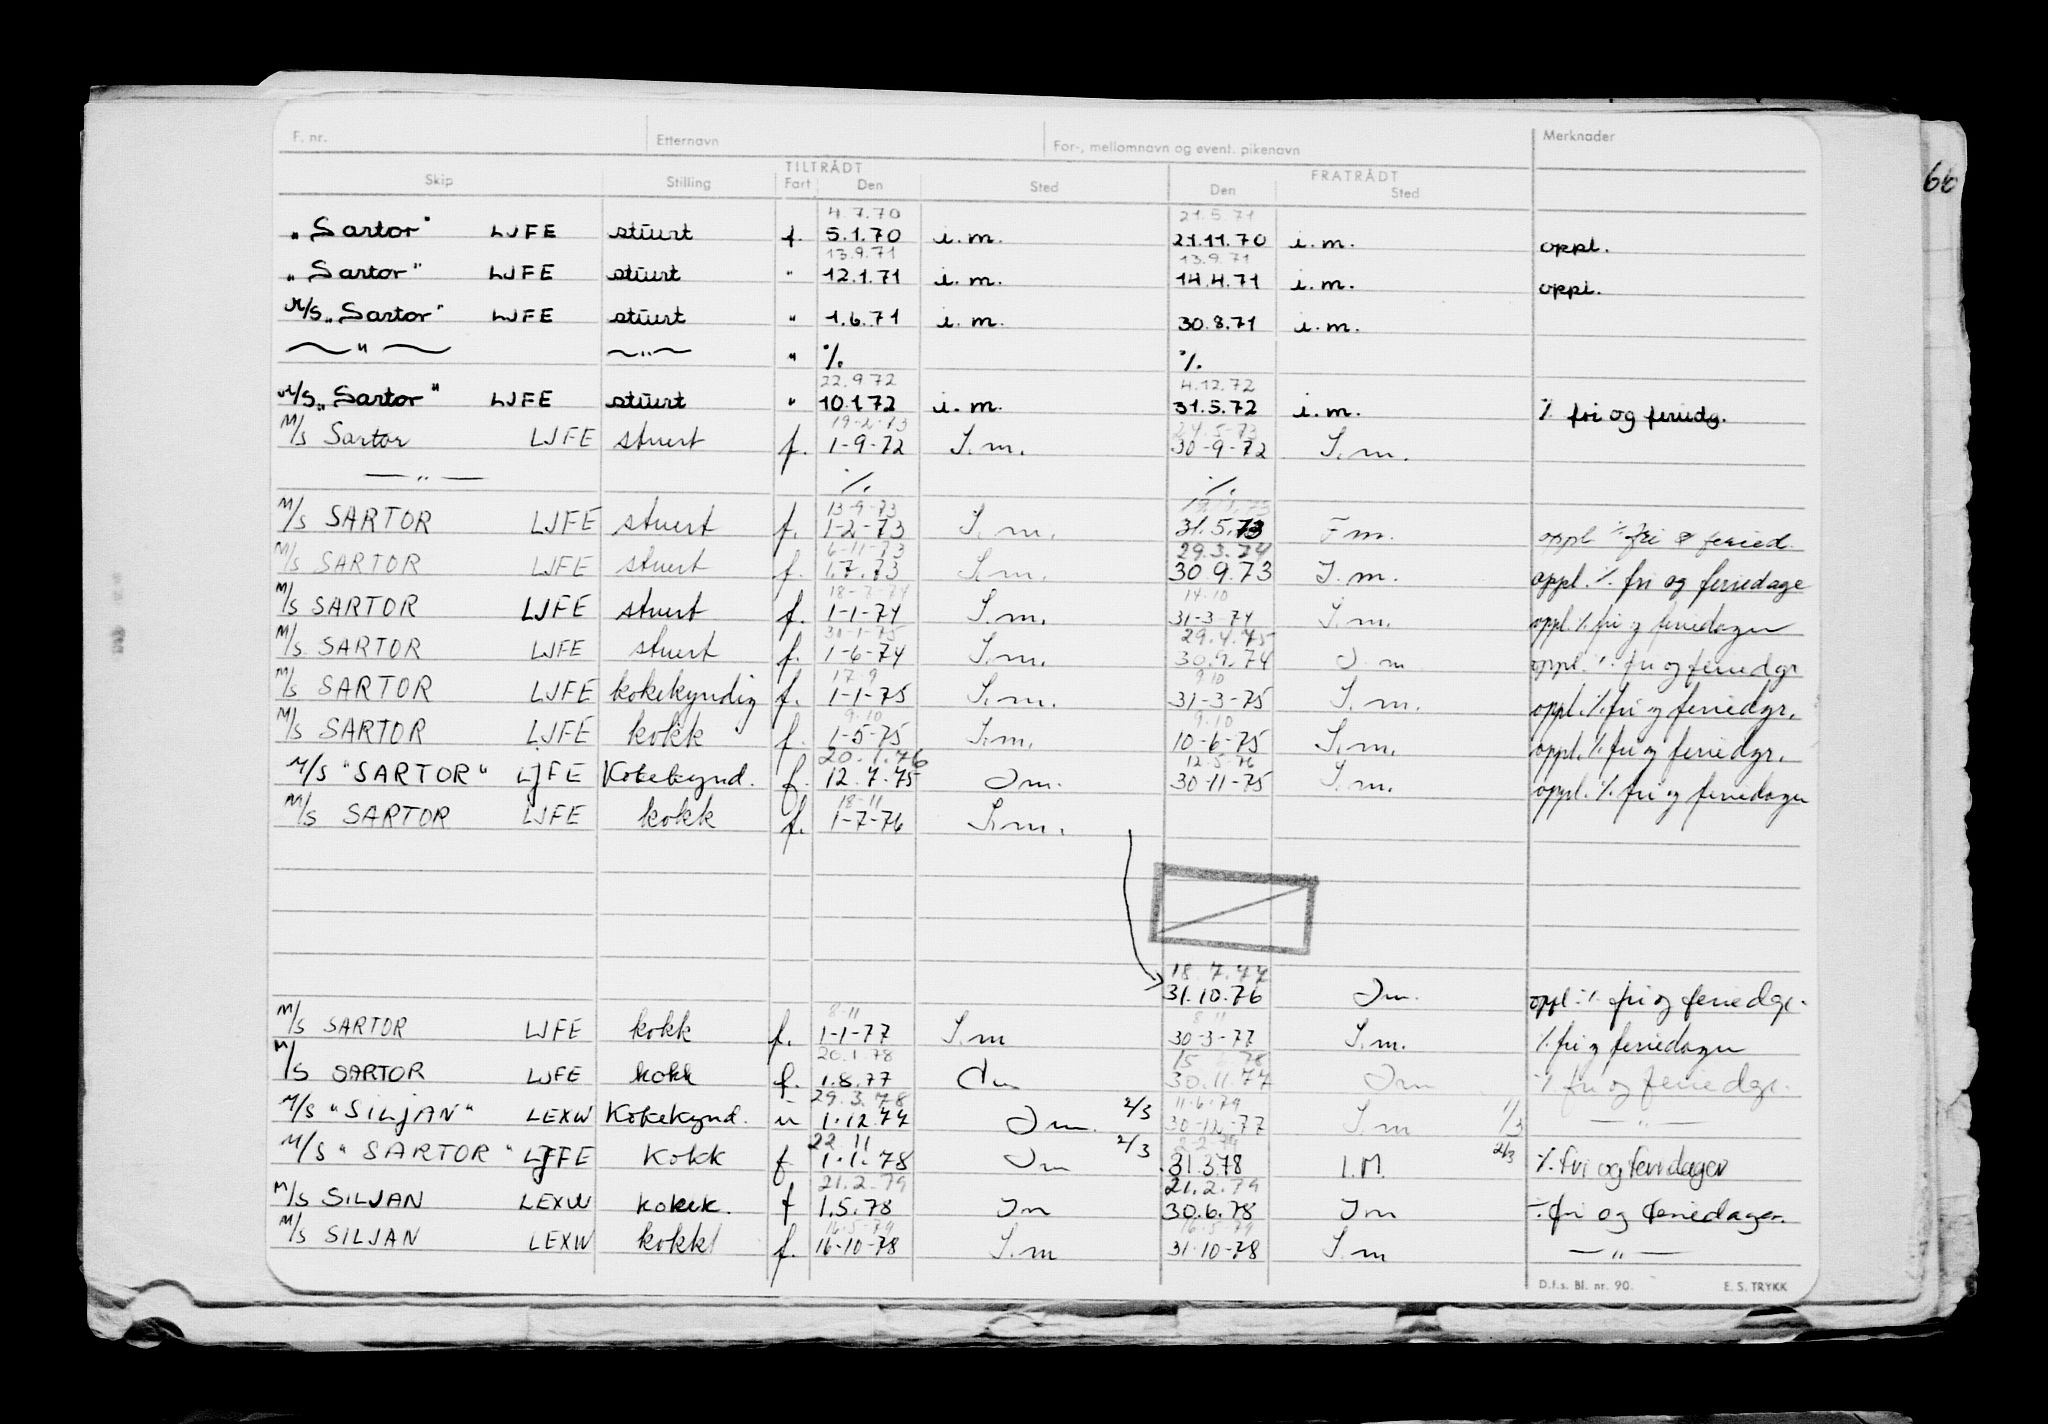 F. nr. Etternavn For-, mellomnavn og event. pikenavn Merknader
TILTRÅDT FRATRÅDT
Skip Stilling Fart Den Sted Den Sted
4.7.70 21.5.71
„Sartor" LJFE stuert f. 5.1.70 i.m. 21.11.70 i.m. oppl.
13.9.71 13.9.71
„Sartor" LJFE stuert " 12.1.71 i.m. 14.4.71 i.m. oppl.
M/S „Sartor" LJFE stuert " 1.6.71 i.m. 30.8.71 i.m.
— " — — " — " %. %.
22.9.72 4.12.72
M/S „Sartor" LJFE stuert " 10.1.72 i.m. 31.5.72 i.m. % fri og feriedg.
19-2-73 24.5-73
M/S Sartor LJFE stuert f. 1-9-72 I.m. 30-9-72 I.m.
— " — %. %.
13-9-73
M/S SARTOR LJFE stuert f. 1-2-73 I.m. 31.5.73 I m. oppl % fri & feried.
6-11-73 29.3.74
M/S SARTOR LJFE stuert f. 1.7.73 I.m. 30.9.73 I.m. oppl. %. fri og feriedage
14.10
M/S SARTOR LJFE stuert f. 1-1-74 I.m. 31-3-74 I.m. oppl. %. fri og feriedager
30-1-75 29.4.75
M/S SARTOR LJFE stuert f. 1-6-74 I.m. 30.9.74 I m oppl. %. fri og feriedgr
17.9 9.10
M/S SARTOR LJFE kokekyndig f. 1-1-75 I.m. 31-3-75 I.m. oppl. %. fri og feriedgr.
9.10 9.10
M/S SARTOR LJFE kokk f. 1-5-75 I.m. 10-6-75 I.m. oppl. %. fri og feriedgr.
20.1.76 12.5.76
M/S "SARTOR" LJFE Kokekynd. f. 12.7.75 Im. 30-11-75 I.m. oppl. %. fri og feriedager
18-11
M/S SARTOR LJFE kokk f. 1-7-76 I.m.
18.7.77
31.10.76 Im. oppl. %. fri og feriedgr.
8-11 8 11
M/S SARTOR LJFE kokk f. 1-1-77 I.m 30-3-77 I.m. % fri og feriedager
20.1.78
M/S SARTOR LJFE kokk f. 1.8.77 Im 30.11.77 Im % fri og feriedgr.
29.3.78 11.6.79
M/S "SILJAN" LEXW Kokekynd. u 1.12.77 Im. 2/3 30-12-77 I.m 1/3 — " —
22 11 2-2-79
M/S "SARTOR" LJFE Kokk f 1.1.78 Im 2/3 31.3.78 I.M. 2/3 %. fri og feriedager
21.2.79 21.2.79
M/S SILJAN LEXW kokk. f 1.5.78 Im 30.6.78 Im % fri og feriedager.
16-5-79 16-5-79
M/S SILJAN LEXW kokk f. 16-10-78 I.m 31-10-78 I.m — " —
D.f.s. Bl. nr. 90. E. S. TRYKK
66